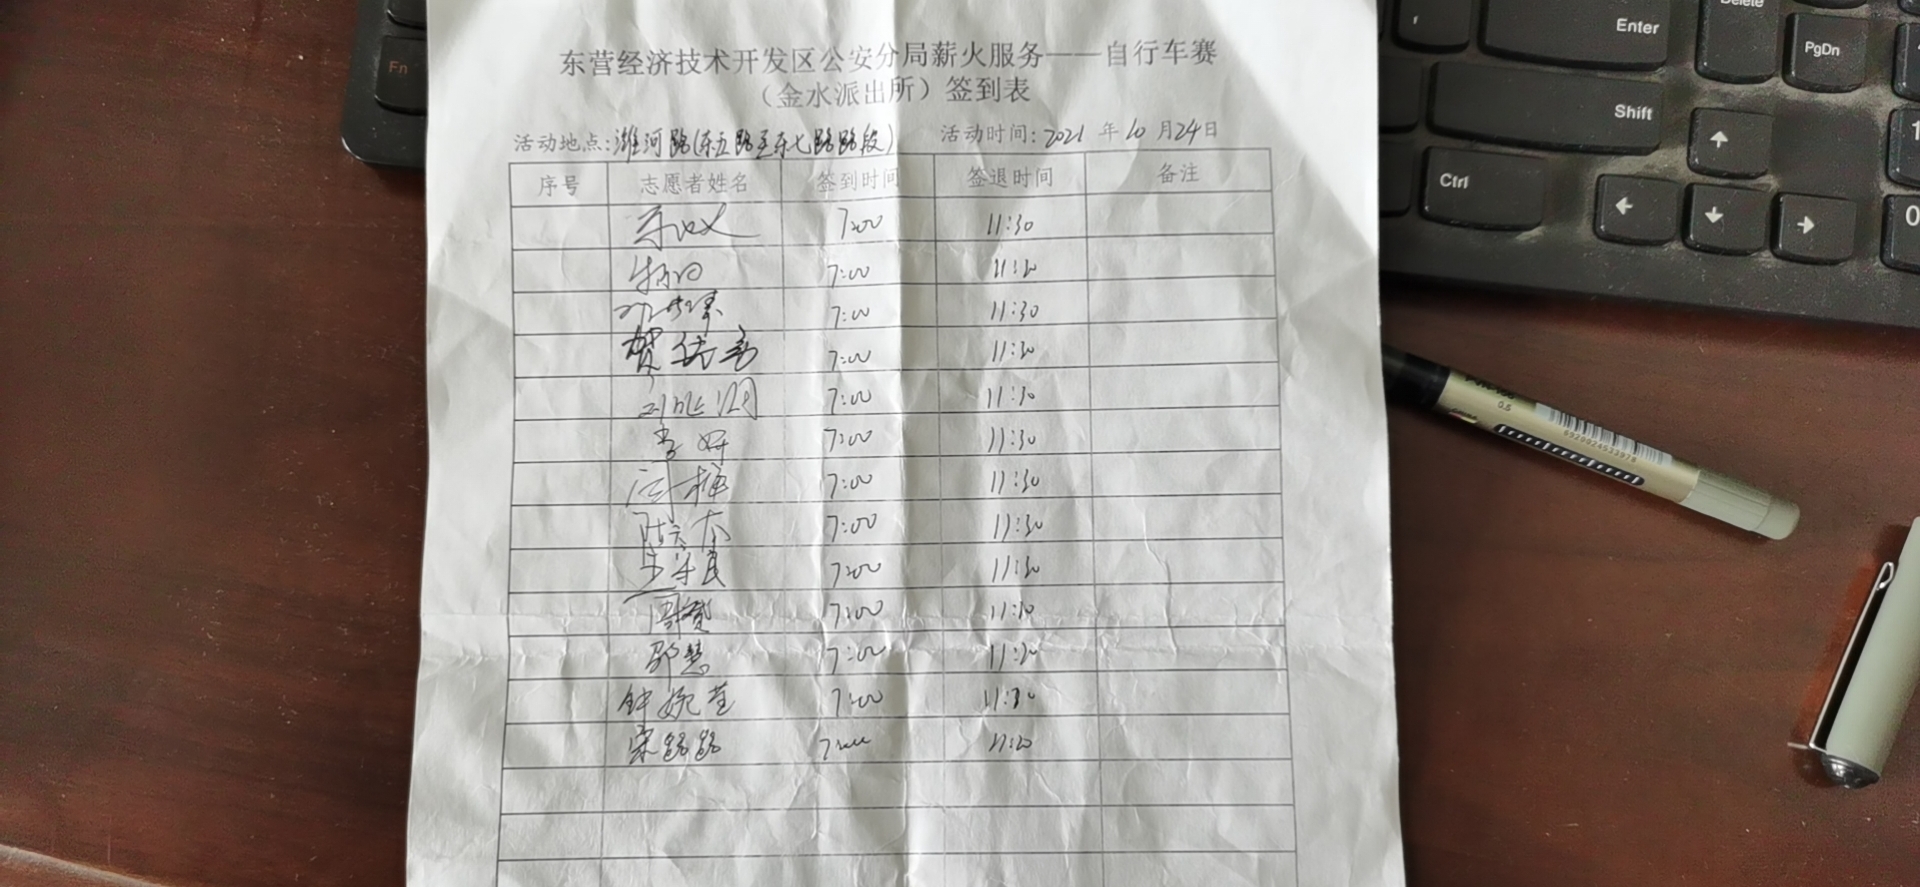 东营经济技术开发区公安分局薪火服务——自行车赛
（金水派出所）签到表
活动地点:潍河路(东五路至东七路路段) 活动时间: 2021 年 10 月 24 日
序号 志愿者姓名 签到时间 签退时间 备注
7:00 11:30
7:00 11:30
7:00 11:30
贺 7:00 11:30
7:00 11:30
李妍 7:00 11:30
7:00 11:30
7:00 11:30
7:00 11:30
周赞 7:00 11:30
邵慧 7:00 11:30
钟婉莹 7:00 11:30
宋路路 7:00 11:30
Fn
Delete
Enter
PgDn
Shift
Ctrl
0
0.5